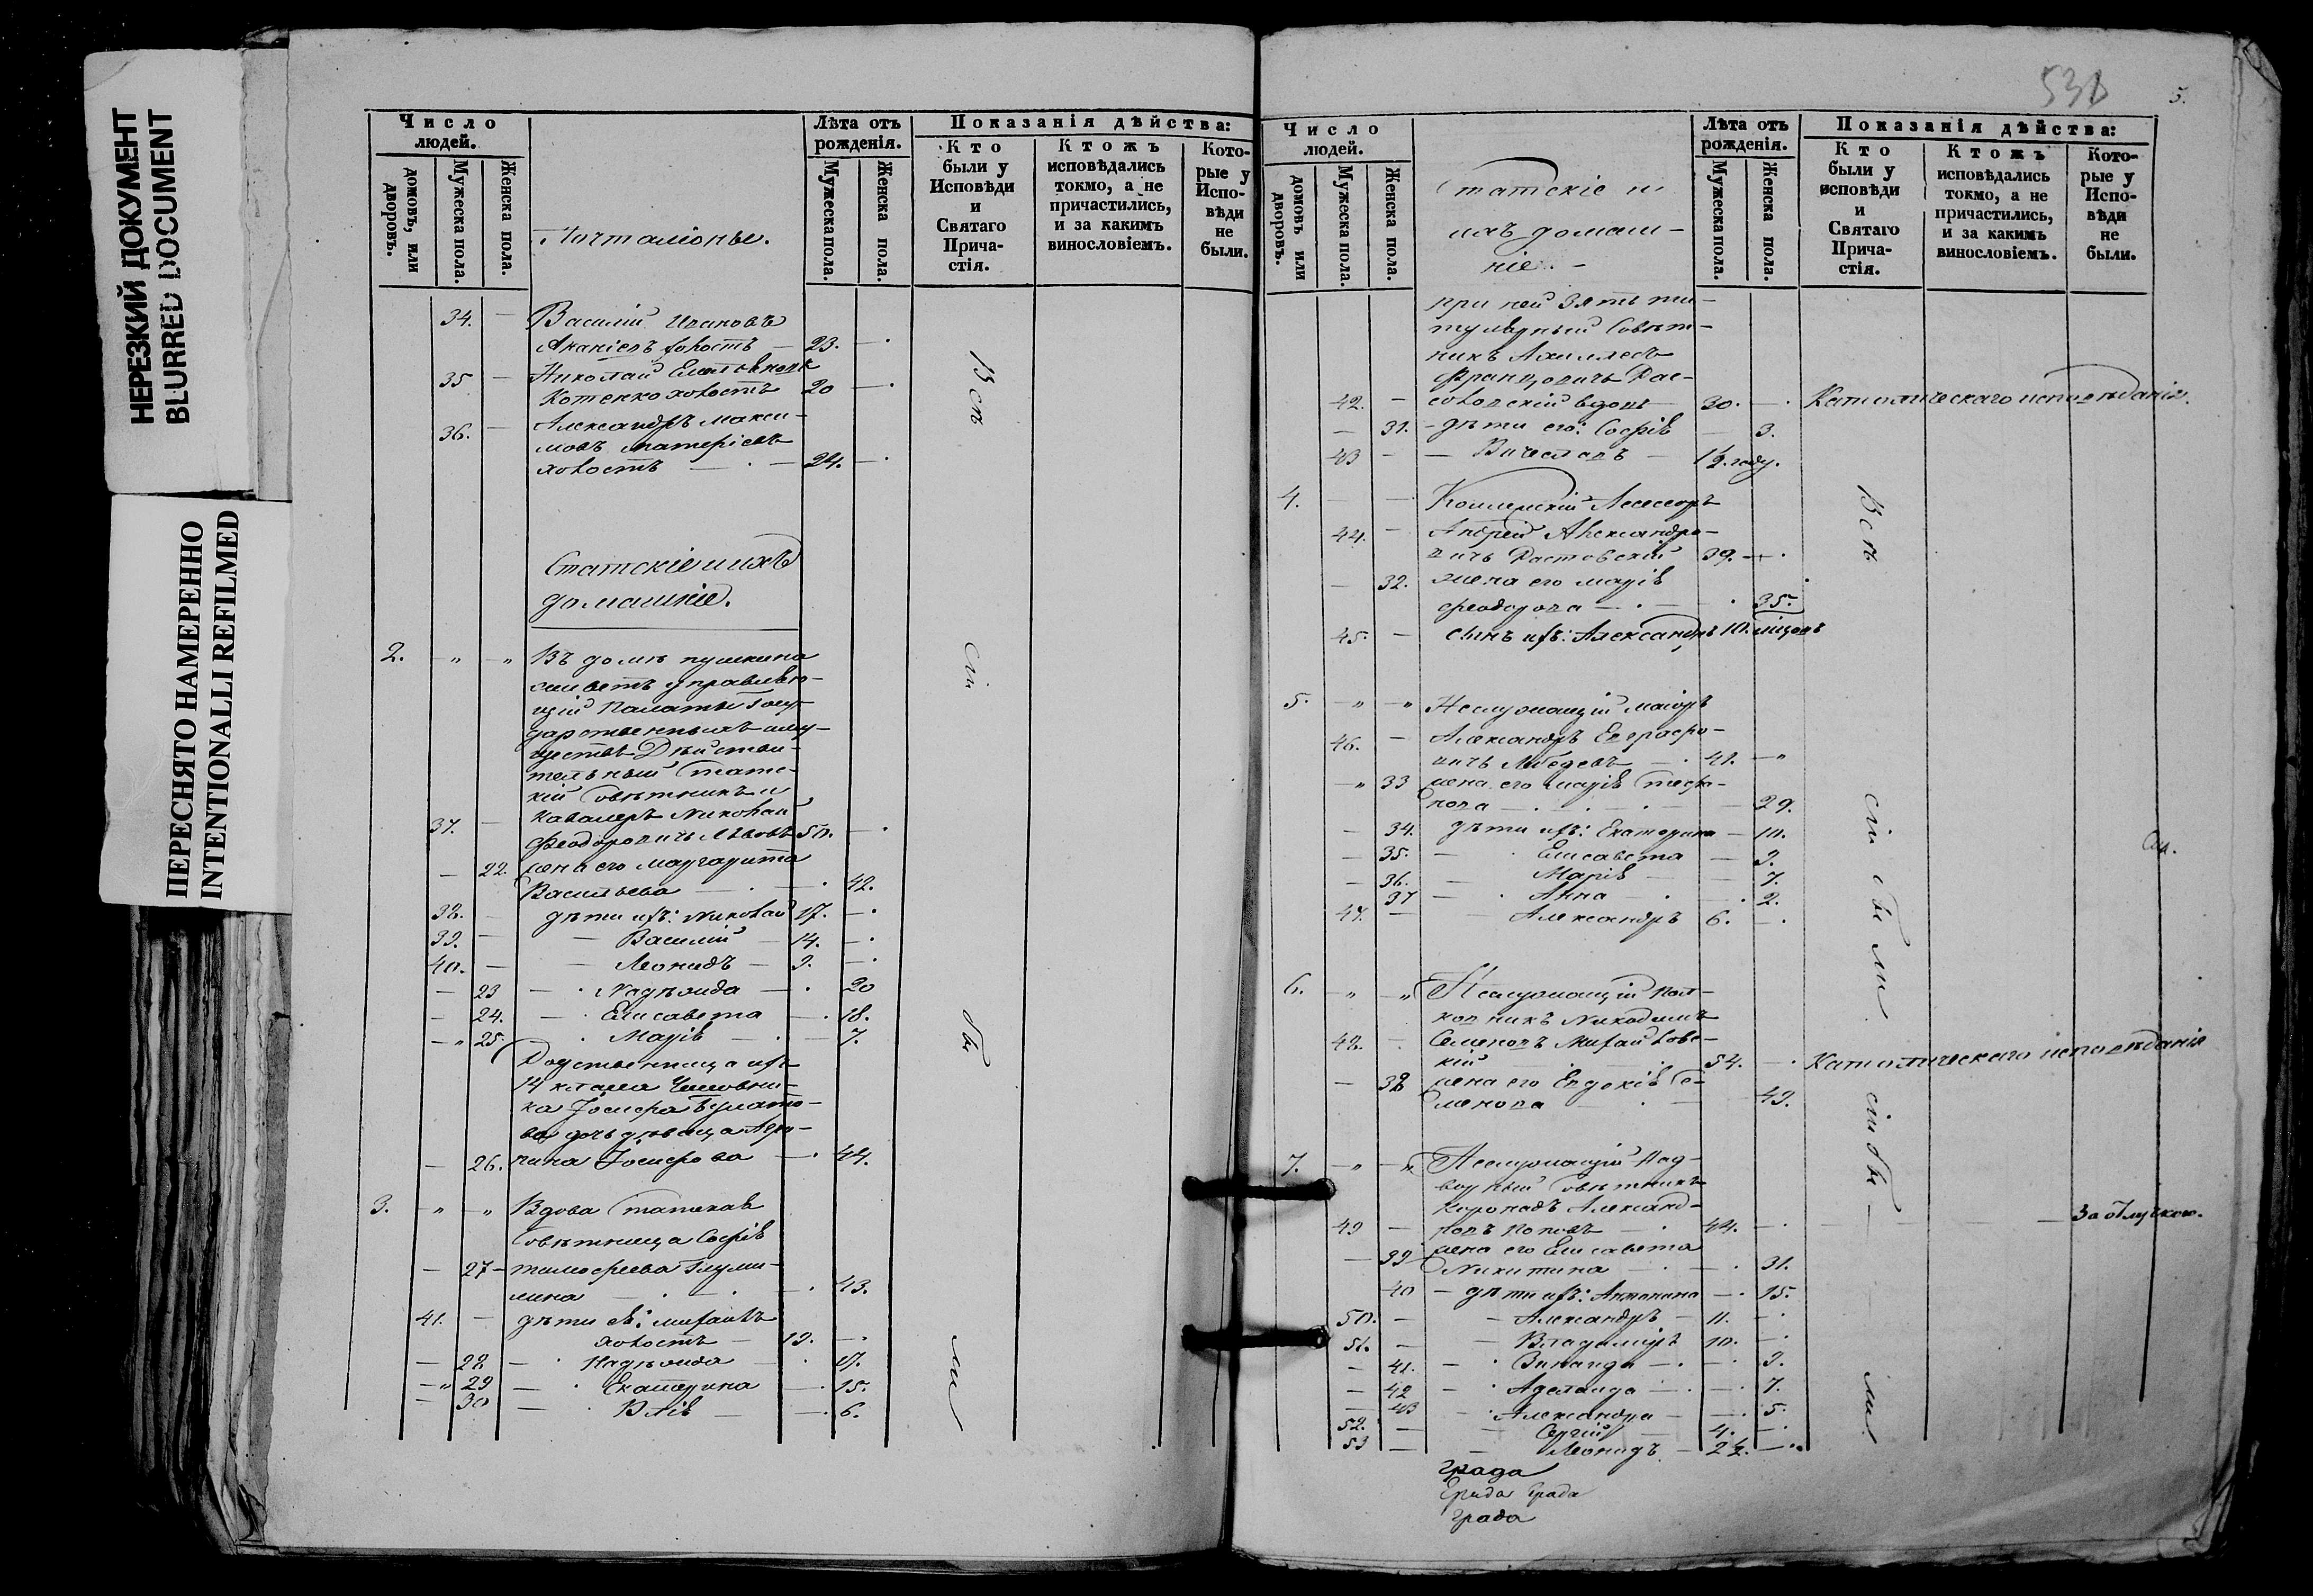 НЕРЕЗКИЙ ДОКУМЕНТ
BLURRED DOCUMENT
ПЕРЕСНЯТО НАМЕРЕННО
INTENTIONALLI REFILMED
Число людей.
домовъ, или дворовъ.
Мужеска пола.
Женска пола.
Почталіоны.
Лѣта отъ рожденія.
Мужеска пола.
Женска пола.
Показанія дѣйства:
Кто были у Исповѣди и Святаго Прича-стія.
Ктожъ исповѣдались токмо, а не причастились, и за какимъ винословіемъ.
Кото-рые у Испо-вѣди не были.
34. — Василій Ивановъ
холостъ — 23. — .
35 — Николай
Котенко холостъ 20 — .
36. — Александръ Макси-
мовъ
холостъ — . — 24. — .
Статскіе и ихъ
домашніе.
2. — „ — „ Въ домѣ пушкина
живетъ управляю-
щій Палаты Госу-
дарственныхъ иму-
ществъ Дѣйстви-
тельный Статс-
кій Совѣтникъ и
37. — Кавалеръ Николай
Феодоровичь Львовъ 50. — .
— 22. жена его Маргарита
Васильева — . — . 42.
38. — дѣти ихъ: Николай 17. — .
39. — — Василій — 14. — .
40. — — Леонидъ — 9. — .
— 23 — . Надѣжда — . 20
— 24. — . Елисавета — . 18.
— „ 25. — . Марія — . — 7.
Родственница ихъ
14 класса Чиновни-
ка Іосифа Булато-
ва дочь дѣвица
— 26. Іосифова — . 44.
3. — „ — „ Вдова Статская
Совѣтница Софія
— 27 — тимофеева
— . — . — . 43.
41. — дѣти ея: михаилъ
холостъ — 19. — .
— 28 — . Надѣжда — . 17.
— „ 29 — . Екатерина — . 15.
— 30 — . Юлія — — . 6.
Всѣ
сіи
бы
ли
538
5.
Число людей.
домовъ или дворовъ.
Мужеска пола.
Женска пола.
Статскіе и
ихъ домаш-
ніе. —
Лѣта отъ рожденія.
Мужеска пола.
Женска пола.
Показанія дѣйства:
Кто были у исповѣди и Святаго Прича-стія.
Ктожъ исповѣдались токмо, а не причастились, и за какимъ винословіемъ.
Кото-рые у Испо-вѣди не были.
при ней Зять ти-
тулярный Совѣт-
никъ Ахиллесъ
Францовичь Рас-
42. — вдовъ — 30. — . Католическаго исповѣданія.
— 31. — дѣти его: Софія — 3.
43 — — Вячеславъ — 1½. году.
4. — — Коллежскій Ассесоръ
44. — Андрей Александро-
вичь Растовскій 39. — .
— 32. жена его марія
феодорова — . — . 35.
45. — сынъ ихъ: Александръ 10. мѣсяцовъ
5. — „ — „ Неслужащій маіоръ
46. — Александръ Евграфо-
вичь Лебедевъ — . 41. — „
— „ 33 жена его марія Стефа-
нова — . — . — 29.
— 34. дѣти ихъ: Екатерина — 10.
— 35. — . Елисавета — 9.
— 36. — Марія — — 7.
— 37 — . Анна — . — . 2.
47. — — Александръ 6. — .
6. — „ — „ Неслужащій пол-
ковникъ Никодимъ
48. — Семеновъ Михайловс-
кій — 54. — . Католическаго исповѣданія
— 38 жена его Евдокія Се-
менова — . — 49.
7. — „ — „ Неслужащій Над-
ворный Совѣтникъ
Александ-
49 — ровъ Поповъ — . 44. — . — За отлучкою.
— 39 жена его Елисавета
Никитина — . — . 31.
40 — дѣти ихъ: Антонина — . 15.
50. — — Александръ — 11. — .
51. — — Владиміръ 10. — .
— 41. — . Зинаида — . — . 9.
— 42 — . Аделаида — . — . 7.
— 43 — . Александра — — . 5.
52. — — Сергій — 4. — .
53 — — Леонидъ — 2½. — .
Всѣ
сіи были.
сіи бы
ли.
града
града
града